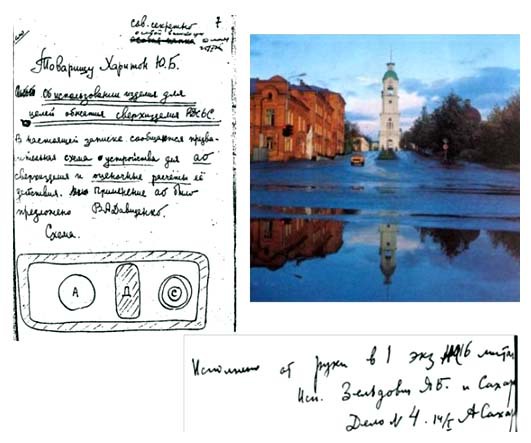 сов. секретно
7
особой важности
Товарищу Харитон Ю.Б.
Об использовании изделия для
целей обжатия сверхизделия РДС6С
В настоящей записке сообщаются предва-
рительная схема устройства для АО
сверхизделия и оценочные расчеты её
действия. Применение АО было
предложено В.А.Давиденко.
Схема.
А
Д
С
Исполнено от руки в 1 экз
Исп. Зельдович Я.Б. и Сахар
Дело № 4. 14/I А Сахар